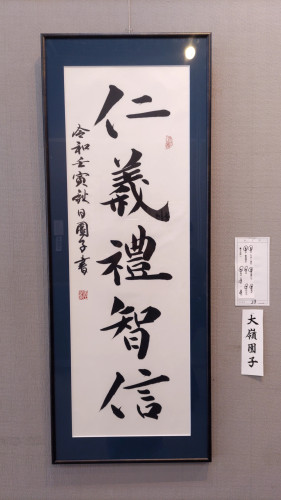 仁義禮智信
令和壬寅秋日園子書
大嶺園子